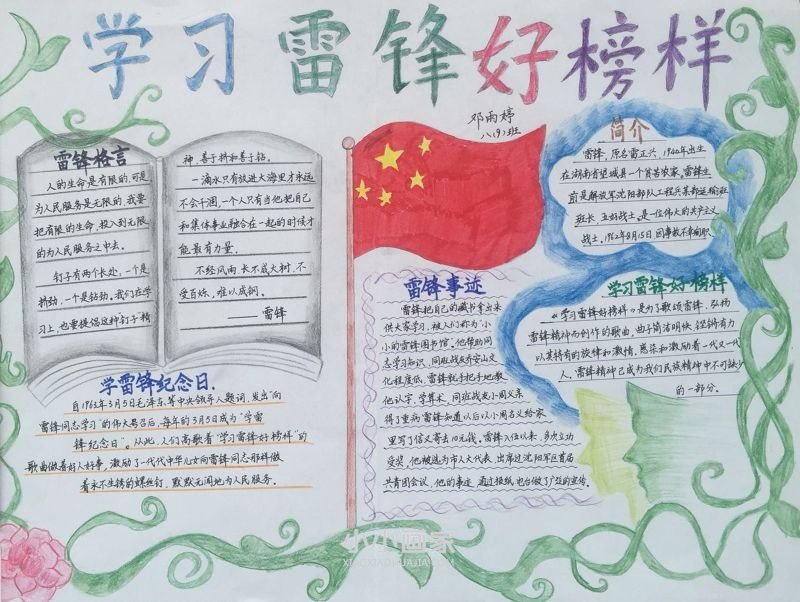 学习雷锋好榜样
邓雨婷
八(9)班
雷锋格言
人的生命是有限的,可是
为人民服务是无限的,我要
把有限的生命,投入到无限
的为人民服务之中去。
钉子有两个长处,一个是
挤劲,一个是钻劲。我们在学
习上,也要提倡这种钉子精
神,善于挤和善于钻。
一滴水只有放进大海里才永远
不会干涸,一个人只有当他把自己
和集体事业融合在一起的时候才
能最有力量。
不经风雨,长不成大树,不
受百炼,难以成钢。
——雷锋
学雷锋纪念日.
自1963年3月5日毛泽东等中央领导人题词,发出"向
雷锋同志学习"的伟大号召后,每年的3月5日成为"学雷
锋纪念日"。从此,人们高歌着"学习雷锋好榜样"的
歌曲做着好人好事,激励了一代代中华儿女向雷锋同志那样做
着永不生锈的螺丝钉,默默无闻地为人民服务。
简介
雷锋,原名雷正兴,1940年出生
在湖南省望城县一个贫苦农家,雷锋生
前是解放军沈阳部队工程兵某部运输班
班长、五好战士。是一位伟大的共产主义
战士。1962年8月15日,因事故不幸殉职
雷锋事迹
雷锋把自己的藏书拿出来
供大家学习,被人们称为"小
小的雷锋图书馆"。他帮助同
志学习知识,同班战友乔安山文
化程度低,雷锋就手把手地教
他认字、学算术,同班战友小周父亲
得了重病雷锋知道以后以小周名义给家
里写了信又寄去10元钱,雷锋入伍以来,多次立功
受奖,他被选为市人大代表,出席过沈阳军区首届
共青团会议,他的事迹,通过报纸、电台做了广泛的宣传。
学习雷锋好榜样
《学习雷锋好榜样》是为了歌颂雷锋,弘扬
雷锋精神而创作的歌曲,曲子简洁明快,铿锵有力
以其特有的旋律和激情,感染和激励着一代又一代
人,雷锋精神已成为我们民族精神中不可缺少
的一部分。
小小画家
XIAOXIAOHUAJIA.COM